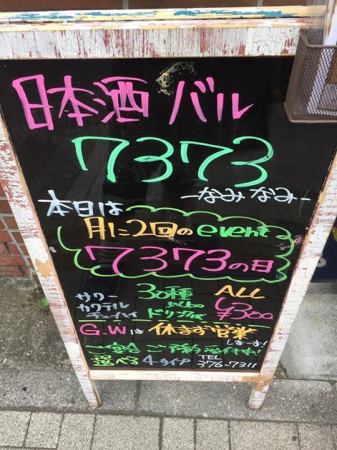 日本酒バル
7373
-なみなみ-
本日は
月に2回のevent
7373の日
サワー 30種 ALL
カクテル
チューハイ ドリンク ¥300
G.Wは休まず営業
しまーす!
ご予約
選べる 4タイプ TEL
376-7311